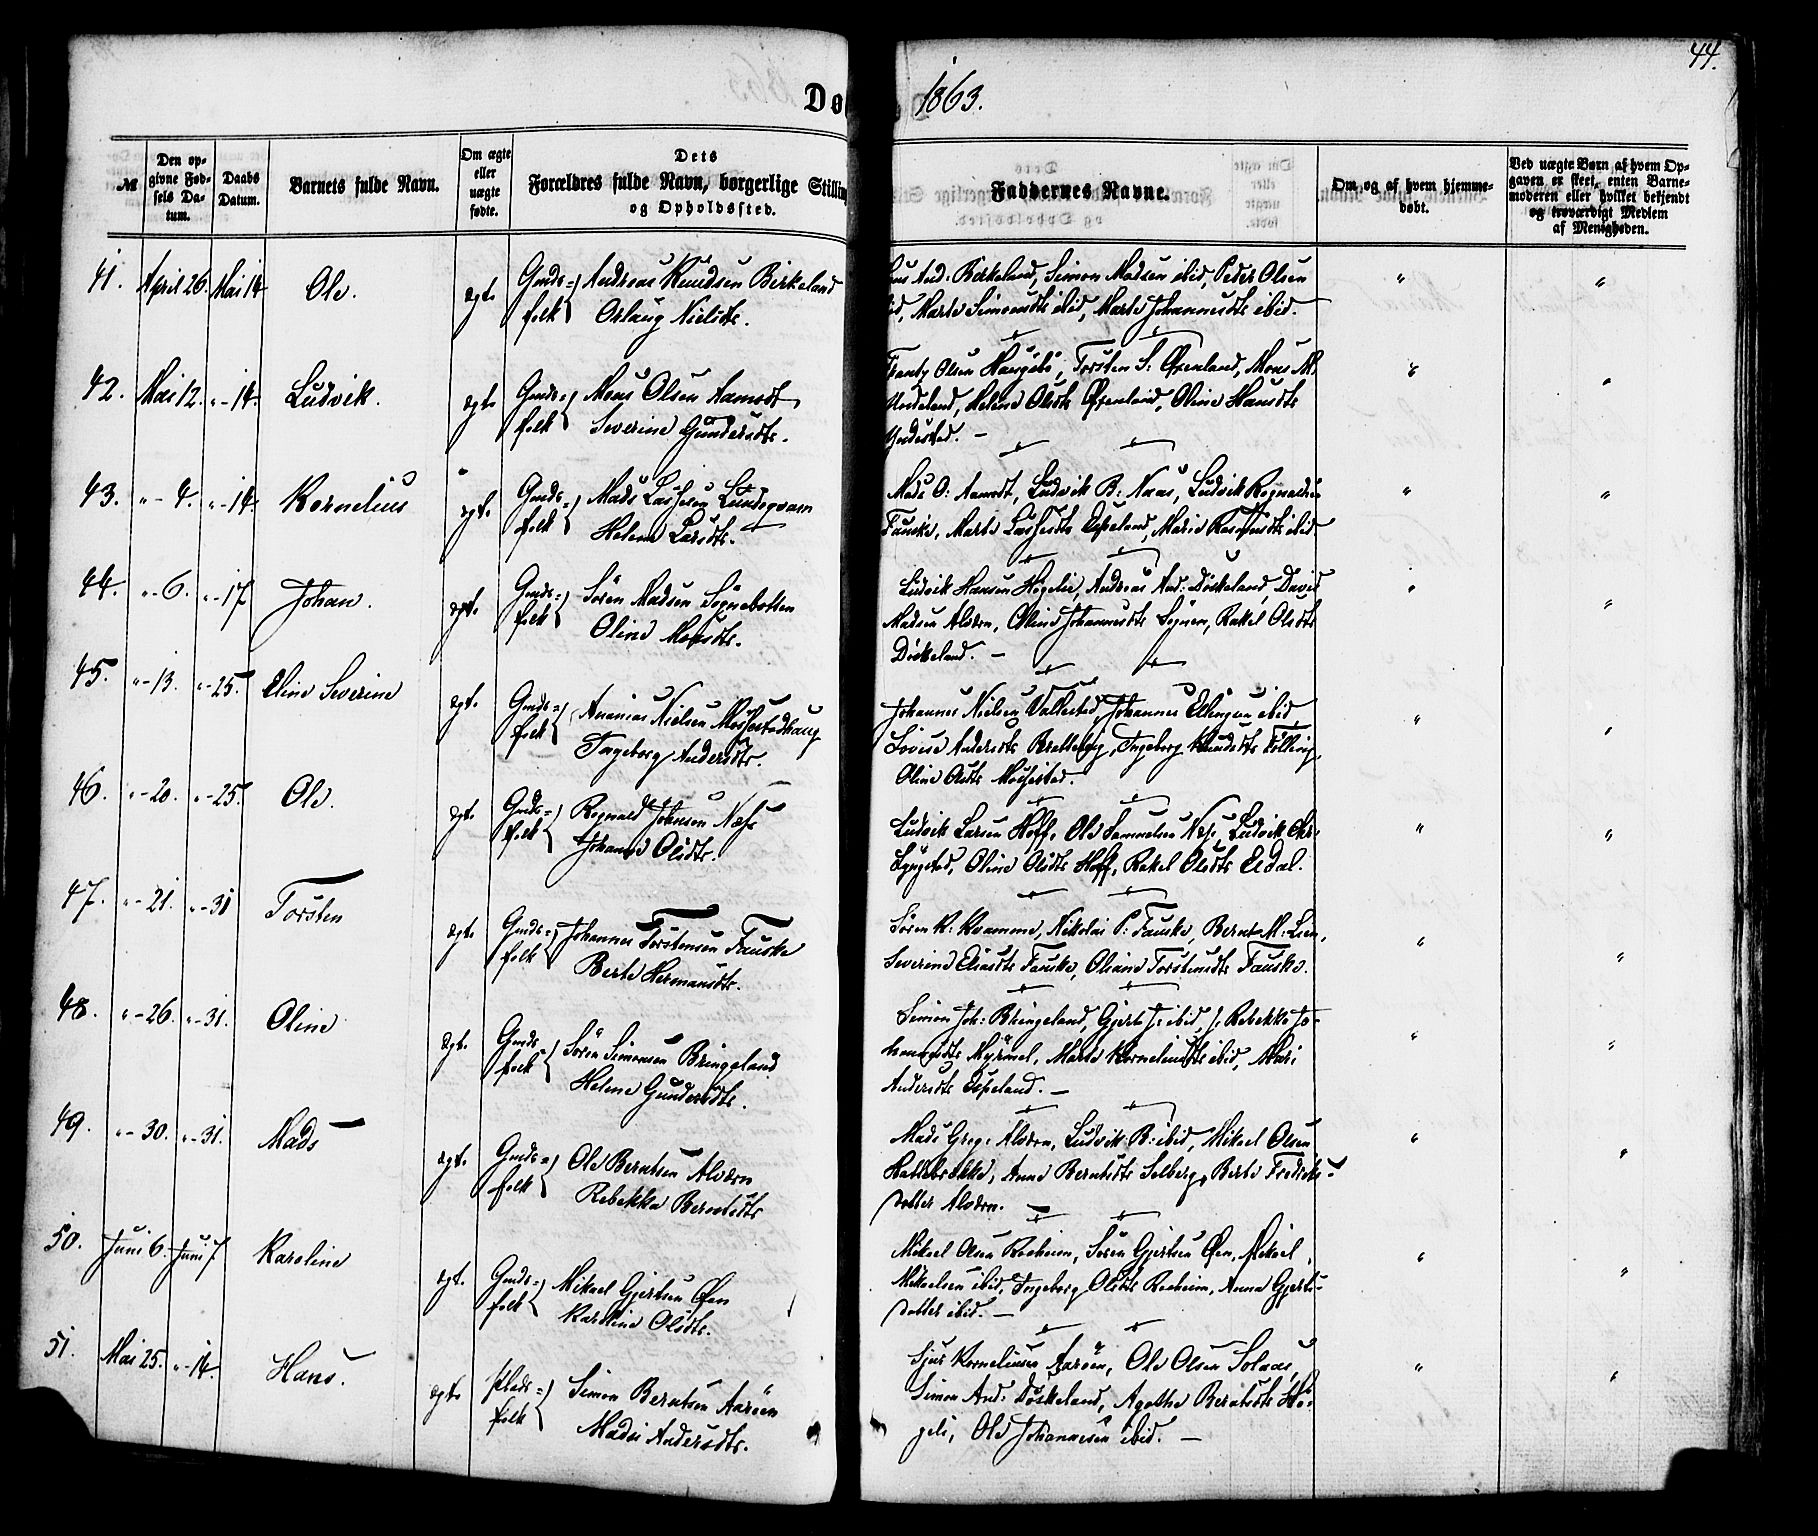 44.
Dø
1863.
№
Den opgivne Fødsels Datum.
Daabs Datum.
Barnets fulde Navn.
Om ægte eller uægte fødte.
Dets Forældres fulde Navn, borgerlige Stilling og Opholdssted.
Faddernes Navne.
Om og af hvem hjemmedøbt.
Ved uægte Børn af hvem Opgaven er skeet, enten Barnemoderen eller hvilket bekjendt og troværdigt Medlem af Menigheden.
41. April 26. Mai 14 Ole. ægte Gmds= folk Andreas Knudsen Birkeland
Oslaug Nielsdtr.
And: Birkeland, Simon Madsen ibid, Peder Olsen
Marte Simonsdtr ibid, Marte Johannesdtr ibid.
42. Mai 12. "-14. Ludvik. ægte Gmds= folk Mons Olsen Aamodt
Severine Gundersdtr.
Olsen Haugsbø, Torsten S. Øxenland, Mons M.
Undeland, Helene Olsdtr Øxenland, Oline Hansdtr
Yndestad. -
43. "-4. "-14. Kornelius ægt. Gmds= folk Mads Lassesen Lundeqvam
Helene Larsdtr.
Mads O: Aamodt, Ludvik B: Naas, Ludvik Rognaldsen
Fauske, Marte Lassesdtr Espeland, Marie Rasmusdtr ibid.
44. "-6. "-17 Johan. ægt. Gmds= folk Søren Madsen Sognebotten
Oline Monsdtr.
Ludvik Hansen Høgelie, Andreas And: Døskeland, David
Madsen Alværen, Oline Johannesdtr Sognen, Rakel Olsdtr
Døskeland. -
45. "-13. "-25. Eline Severine ægt. Gmds= folk Ananias Nielsen Mosfestadhaug
Ingeborg Andersdtr.
Johannes Nielsen Vallestad, Johannes Ellingsen ibid,
Lovise Andersdtr Brettebø, Ingeborg Knudsdtr Følling,
Oline Olsdtr
46. "-20. "-25. Ole. ægt. Gmds= folk Rognald Johnsen Næss
Johanne Olsdtr.
Ludvik Larsen Hoff, Ole Sammelsen Næs, Ludvik Chr:
Lyngstad, Oline Olsdtr Hoff, Rakel Olsdtr Eldal.
47. "-21. "-31 Torsten ægt. Gmds= folk Johannes Torstensen Fauske
Berte Hermansdtr.
Søren K: Kvamme, Nikolai P: Fauske, Bernt M: Lien,
Severine Eliasdtr Fauske, Oliane Torstensdtr Fauske.
48. "-26. "-31. Oline ægt. Gmds= folk Søren Simonsen Bringeland
Helene Gundersdtr.
Simon Joh: Bringeland, Gjert J: ibid, J: Rebekka Jo=
hannesdtr Myrmel, Marte Korneliusdtr ibid, Mari
Andersdtr Espeland. -
49. "-30. "-31. Mads ægt. Gmds= folk Ole Berntsen Alværn
Rebekka Berntsdtr
Mads Greg: Alværn, Ludvik B: ibid, Mikael Olsen
Hatlebrekke, Anne Berntsdtr Solberg, Berte Fredriks=
datter Alværn. -
50. Juni 6. Juni 7 Karoline ægt. Gmds= folk Mikael Gjertsen Øen
Karoline Olsdtr.
Mikael Olsen Roeheim, Søren Gjertsen Øen, Mikael
Mikaelsen ibid, Ingeborg Olsdtr Roeheim, Anna Gjerts=
datter ibid. -
51. Mai 25. "-14. Hans. ægte Plads= folk Simon Berntsen Aarøen
Madsi Andersdtr.
Sjur Korneliusen Aarøen, Ole Olsen Solaas,
Simon And: Døskeland, Agathe Berntsdtr Hø=
geli, Ole Johannesen ibid. -